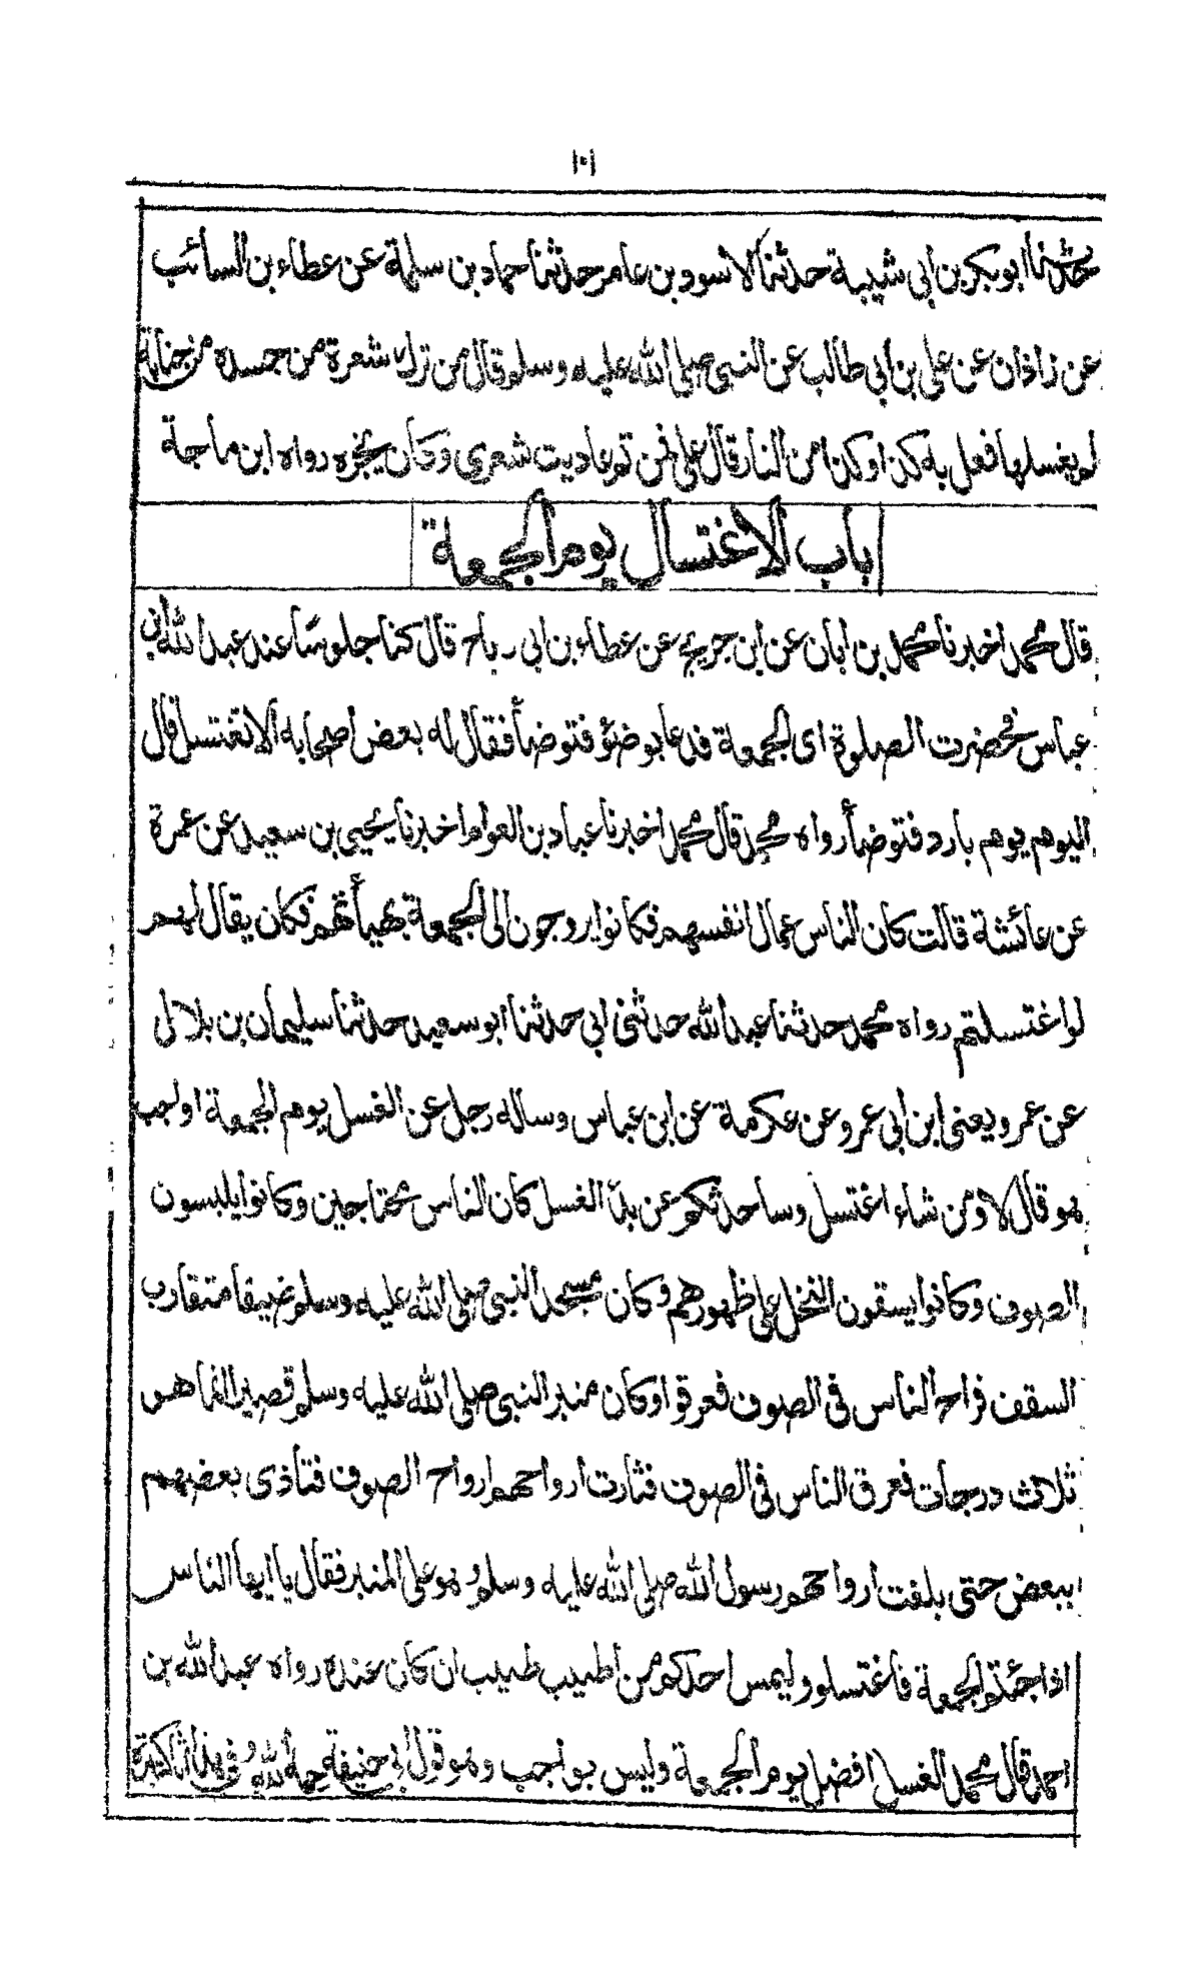 ١٠١
حدثنا ابو بكر بن ابي شيبة حدثنا الاسود بن عامر حدثنا حماد بن سلمة عن عطاء بن السائب
عن زاذان عن علي بن ابي طالب عن النبي صلى الله عليه وسلم قال من ترك شعرة من جسده من جنابة
لم يغسلها فعل به كذا وكذا من النار قال علي فمن ثم عاديت شعري وكان يجزه رواه ابن ماجة
باب الاغتسال يوم الجمعة
قال محمد اخبرنا محمد بن ابان عن ابن جريج عن عطاء بن ابي رباح قال كنا جلوسا عند عبد الله بن
عباس فحضرت الصلوة اى الجمعة فدعا بوضوء فتوضأ فقال له بعض اصحابه الا تغتسل قال
اليوم يوم بارد فتوضأ رواه محمد قال محمد اخبرنا عباد بن العوام اخبرنا يحيى بن سعيد عن عمرة
عن عائشة قالت كان الناس عمال انفسهم فكانوا يروحون الى الجمعة بهيأتهم فكان يقال لهم
لو اغتسلتم رواه محمد حدثنا عبد الله حدثنى ابي حدثنا ابو سعيد حدثنا سليمان بن بلال
عن عمرو يعنى ابن ابي عمرو عن عكرمة عن ابن عباس وساله رجل عن الغسل يوم الجمعة اواجب
هو قال لا ومن شاء اغتسل وساحدثكم عن بدأ الغسل كان الناس محتاجين وكانوا يلبسون
الصوف وكانوا يسقون النخل على ظهورهم وكان مسجد النبي صلى الله عليه وسلم ضيقا متقارب
السقف فراح الناس فى الصوف فعرقوا وكان منبر النبي صلى الله عليه وسلم قصيرا انما هس
ثلاث درجات فعرق الناس فى الصوف فثارت ارواحهم ارواح الصوف فتأذى بعضهم
ببعض حتى بلغت ارواحهم رسول الله صلى الله عليه وسلم وهو على المنبر فقال يا ايها الناس
اذا جئتم الجمعة فاغتسلوا وليمس احدكم من اطيب طيب ان كان عنده رواه عبد الله بن
احمد قال محمد الغسل افضل يوم الجمعة وليس بواجب وهو قول ابي حنيفة رحمه الله وفى هذا اثار كثيرة